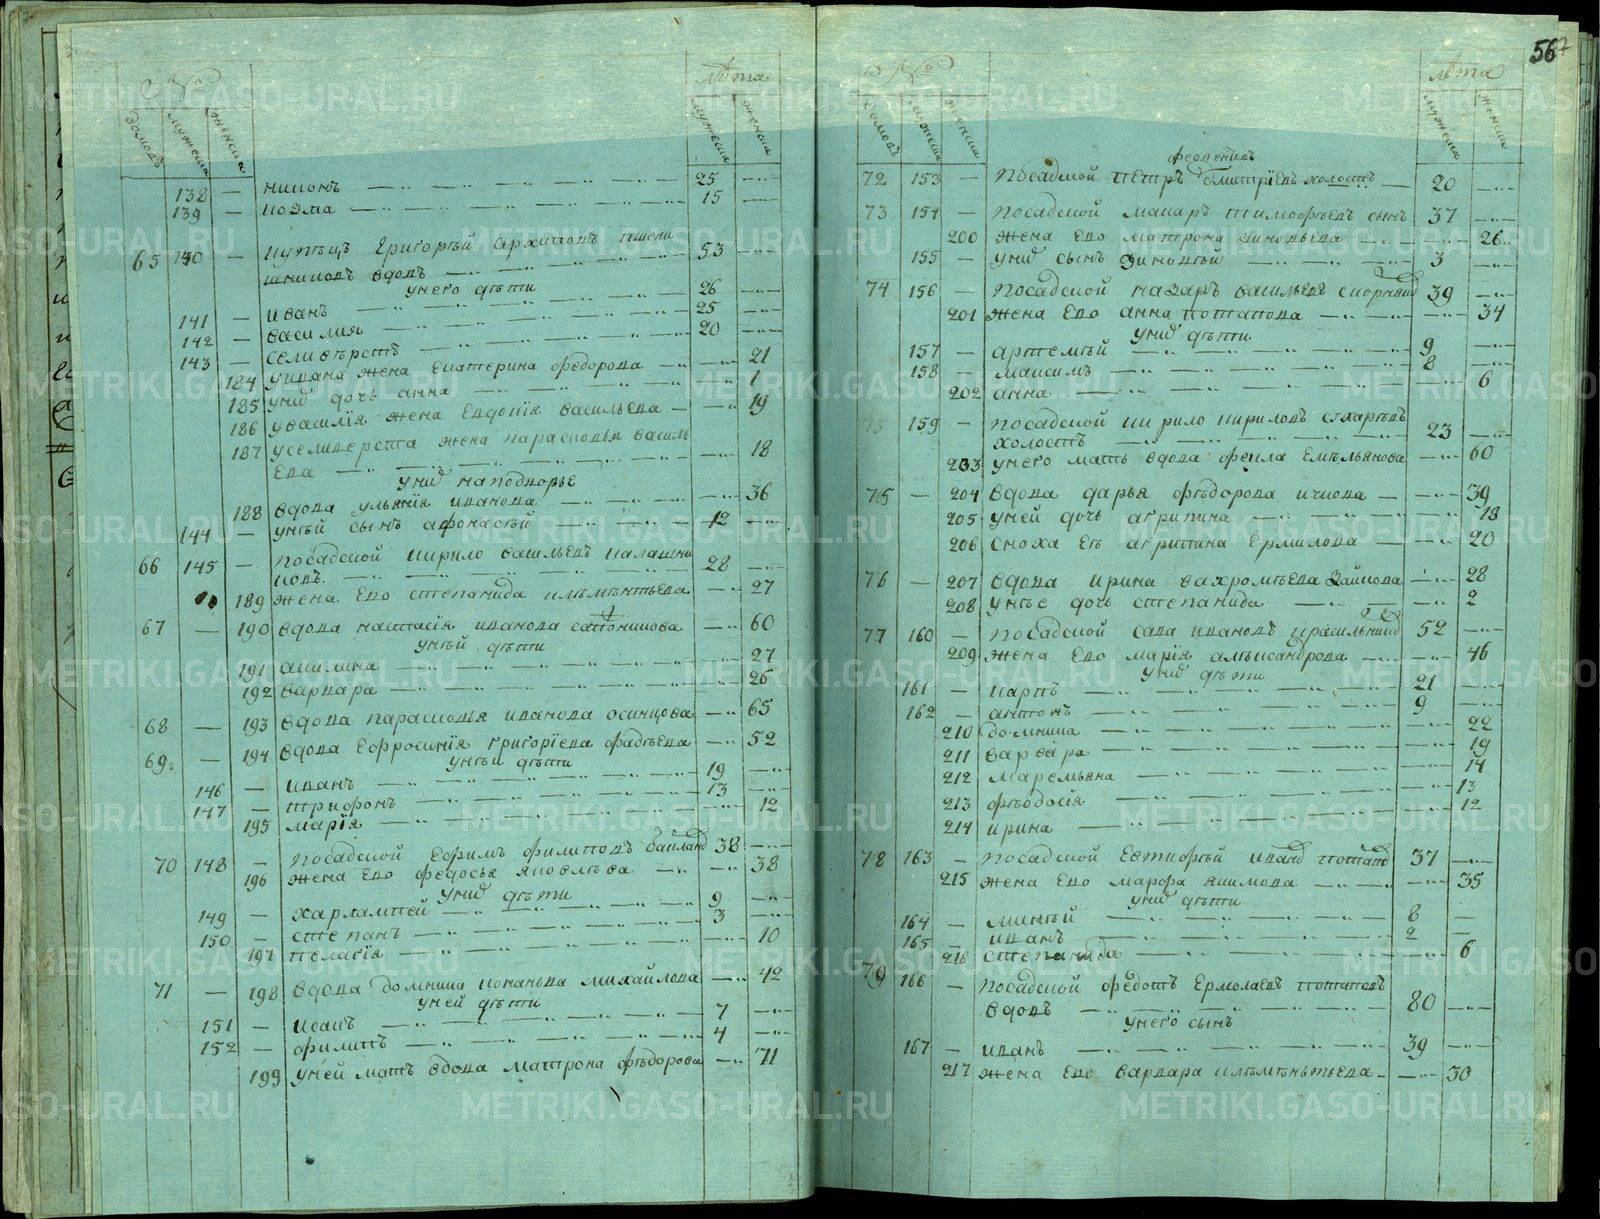 №
лѣта
домовъ
мужеска
женска
мужеска
женска
138 — никонъ 25
139 — козма 15
65 140 — купѣцъ григорѣй архиповъ пшени
шниковъ вдовъ 53
у него дѣти
141 — иванъ 26
142 — василия 25
143 — селивѣрстъ 20
184 у ивана жена екатерина федорова 21
185 у них дочь анна 1
186 у василїя жена евдокїя васильева 19
187 у селиверста жена парасковья василь
ева 18
у них на подворье
188 вдова ульянїя иванова 36
144 — у нѣй сынъ афонасѣй 12
66 145 — посадской кирило васильевъ калашни
ковъ 28
189 жена ево степанида климѣнтьева 27
67 — 190 вдова настасїя иванова сапожникова 60
у нѣй дѣти
191 акилина 27
192 варвара 26
68 — 193 вдова парасковья иванова осинцова 65
69 — 194 вдова ефросинїя григорїева фадѣева 52
у нѣй дѣти
146 — иванъ 19
147 — трифонъ 13
195 марїя 12
70 148 — посадской ефимъ филиповъ 38
196 жена ево федосья яковлѣва 38
у них дѣти
149 — харлампей 9
150 — степанъ 3
197 пелагїя 10
71 — 198 вдова домника кононова михайлова 42
у ней дѣти
151 — исакъ 7
152 — филипъ 4
199 у ней мать вдова матрона фѣдорова 71
567
№
лѣта
домовъ
мужеска
женска
мужеска
женска
72 153 — посадской петръ дмитрїевъ холостъ 20
73 154 — посадской макаръ тимофѣевъ сынъ 37
200 жена ево матрона зиновьева 26
155 — у них сынъ зиновѣй 3
74 156 — посадской назаръ васильевъ 39
201 жена ево анна потапова 34
у них дѣти
157 — артемѣй 9
158 — максимъ 8
202 анна 6
75 159 — посадской кирило кириловъ сухаревъ
холостъ 23
203 у него мать вдова фекла емѣльянова 60
75 — 204 вдова дарья фѣдорова 39
205 у ней дочь агрипина 18
206 сноха еѣ агрипина ермилова 20
76 — 207 вдова ирина вахромѣева зайкова 28
208 у нѣе дочь степанида 2
77 160 — посадской сава ивановъ красильник 52
209 жена ево марїя алѣксандрова 46
у них дѣти
161 — карпъ 21
162 — антонъ 9
210 домника 22
211 варвара 19
212 маремьяна 14
213 фѣодосїя 13
214 ирина 12
78 163 — посадской евтифѣй иванов потапов 37
215 жена ево марфа якимова 35
у них дѣти
164 — минѣй 8
165 — иванъ 2
216 степанида 6
79 166 — посадской федотъ ермолаевъ потаповъ
вдовъ 80
у него сынъ
167 — иванъ 39
217 жена ево варвара климѣньтьева 30
METRIKI.GASO-URAL.RU